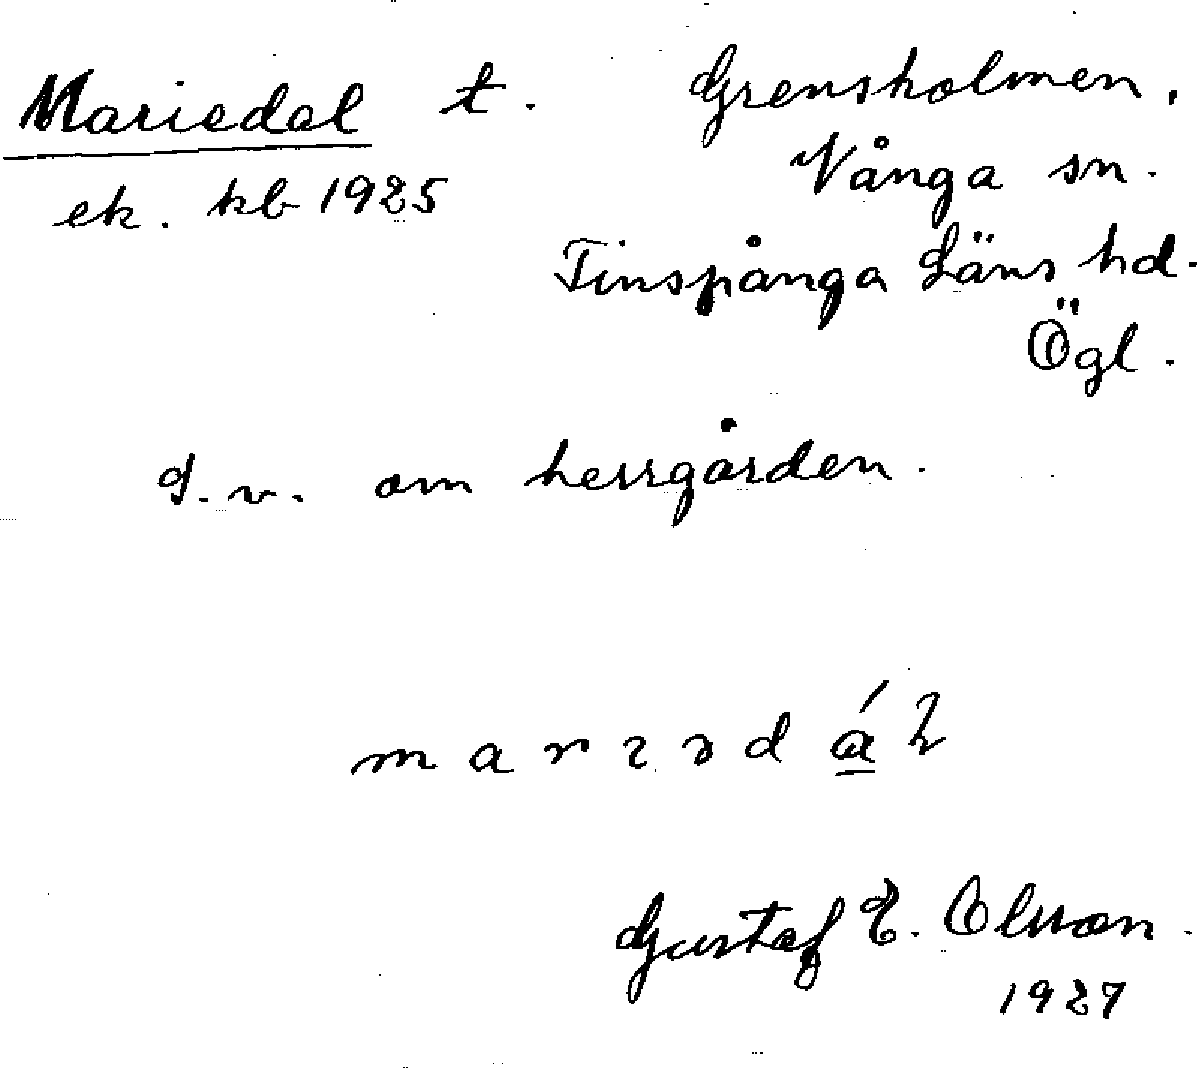 Mariedal t. Grensholmen,
ek. kb 1925
Vånga sn.
Finspånga Läns hd.
Ögl.
g.v. om herrgården.
Gustaf E. Olsson.
1927